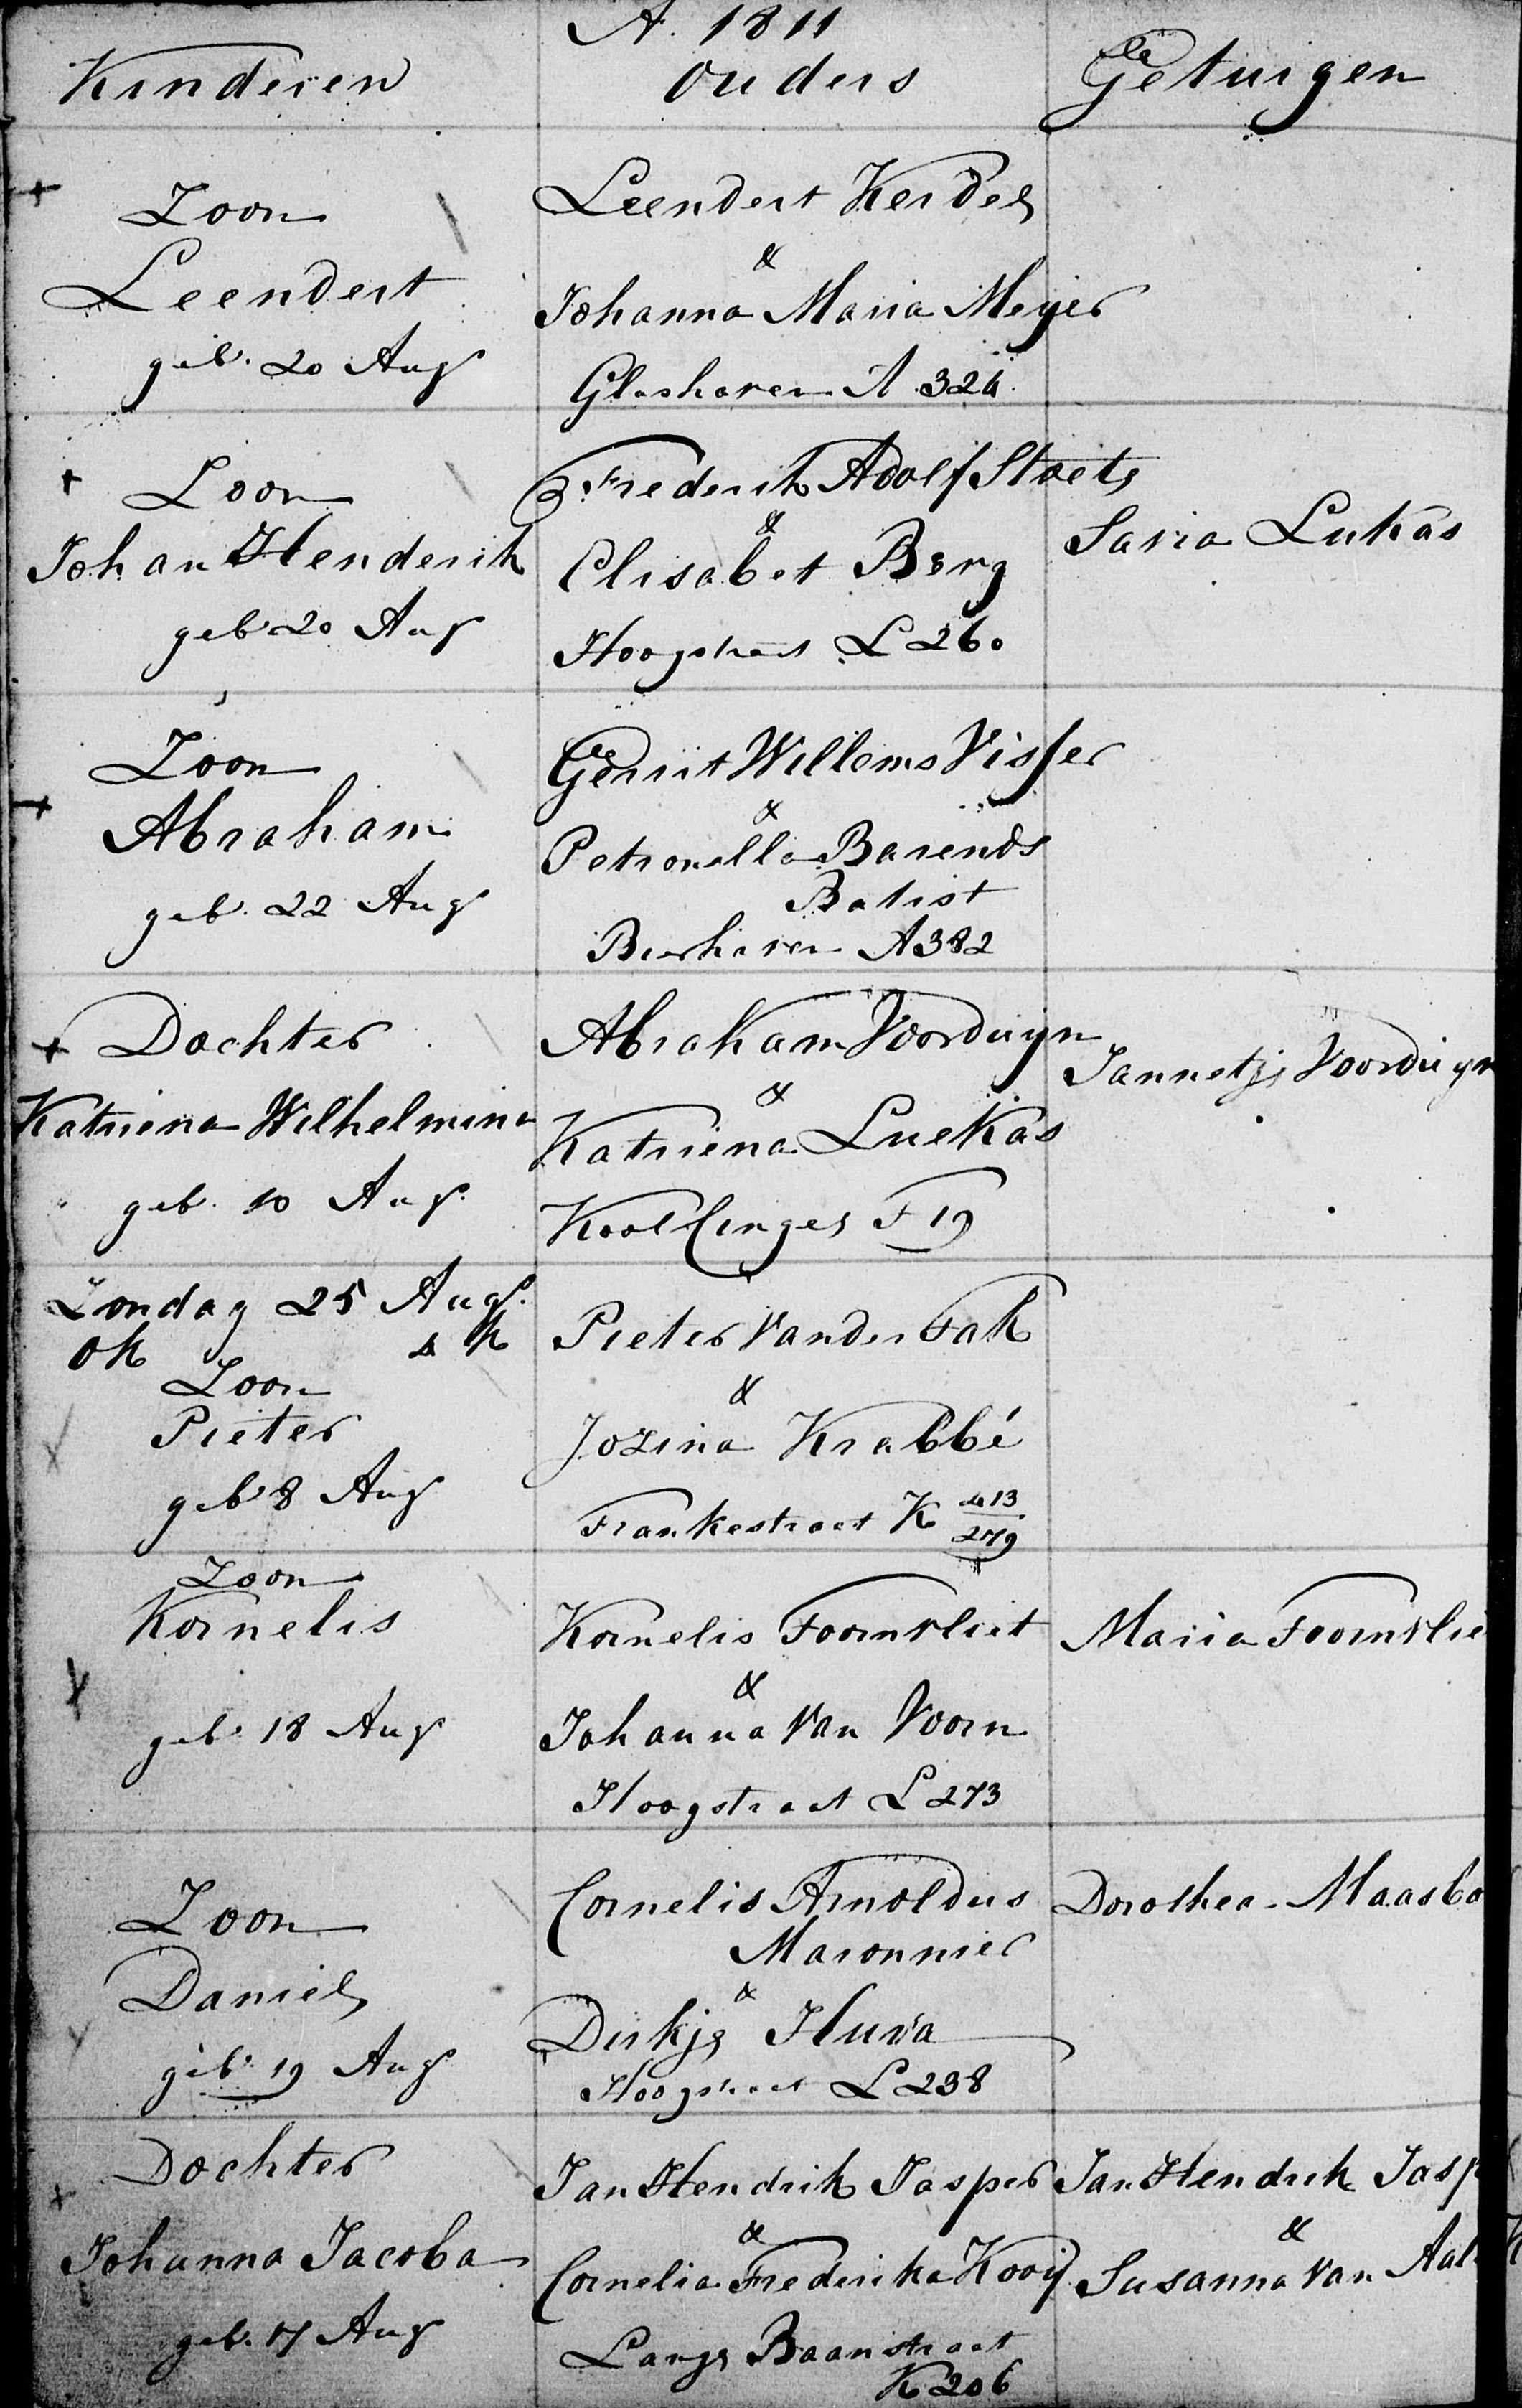 A. 1811
Kinderen
Ouders
Getuigen
Zoon
Leendert
geb. 20 Aug
Leendert Kerdel
&
Johanna Maria Meyer
Glashaven A 324
Zoon
Johan Henderik
geb 20 Aug
Frederik Adolf Staets
&
Elisabet Berg
Hoogstraat L 260
Saria Lukas
Zoon
Abraham
geb. 22 Aug
Gerrit Willems Visser
&
Petronella Barends
Batist
Bierhaven A 382
Dochter
Katriena Wilhelmina
geb. 10 Aug.
Abraham Voorduyn
&
Katriena Luekas
Koolsinges F 19
Jannetje Voorduyn
Zondag 25 Aug.
OK 4 K
Zoon
Pieter
geb 8 Aug
Pieter Van der Fak
&
Jozina Krabbé
Frankestraat K 413
279
Zoon
Kornelis
geb 18 Aug
Kornelis Foornvliet
&
Johanna Van Voorn
Hoogstraat L 273
Maria Foornvlie
Zoon
Daniel
geb. 19 Aug
Cornelis Arnoldus
Maronnier
&
Dirkje Huva
Hoogstraat L 238
Dorothea Maasbo
Dochter
Johanna Jacoba
geb. 17 Aug
Jan Hendrik Jasper
&
Cornelia Frederika Kooij
Lange Baanstraat
K 206
Jan Hendrik Jasp
&
Susanna Van Aal